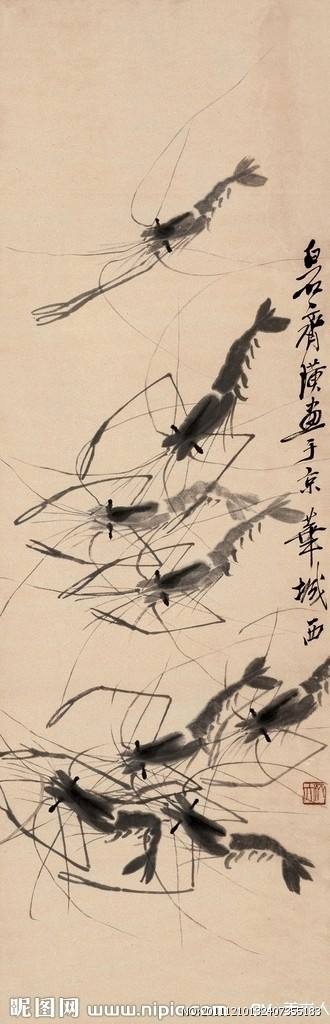 白石齊璜畫于京華城西
昵图网 www.nipic.com
NO:20111210132407355183